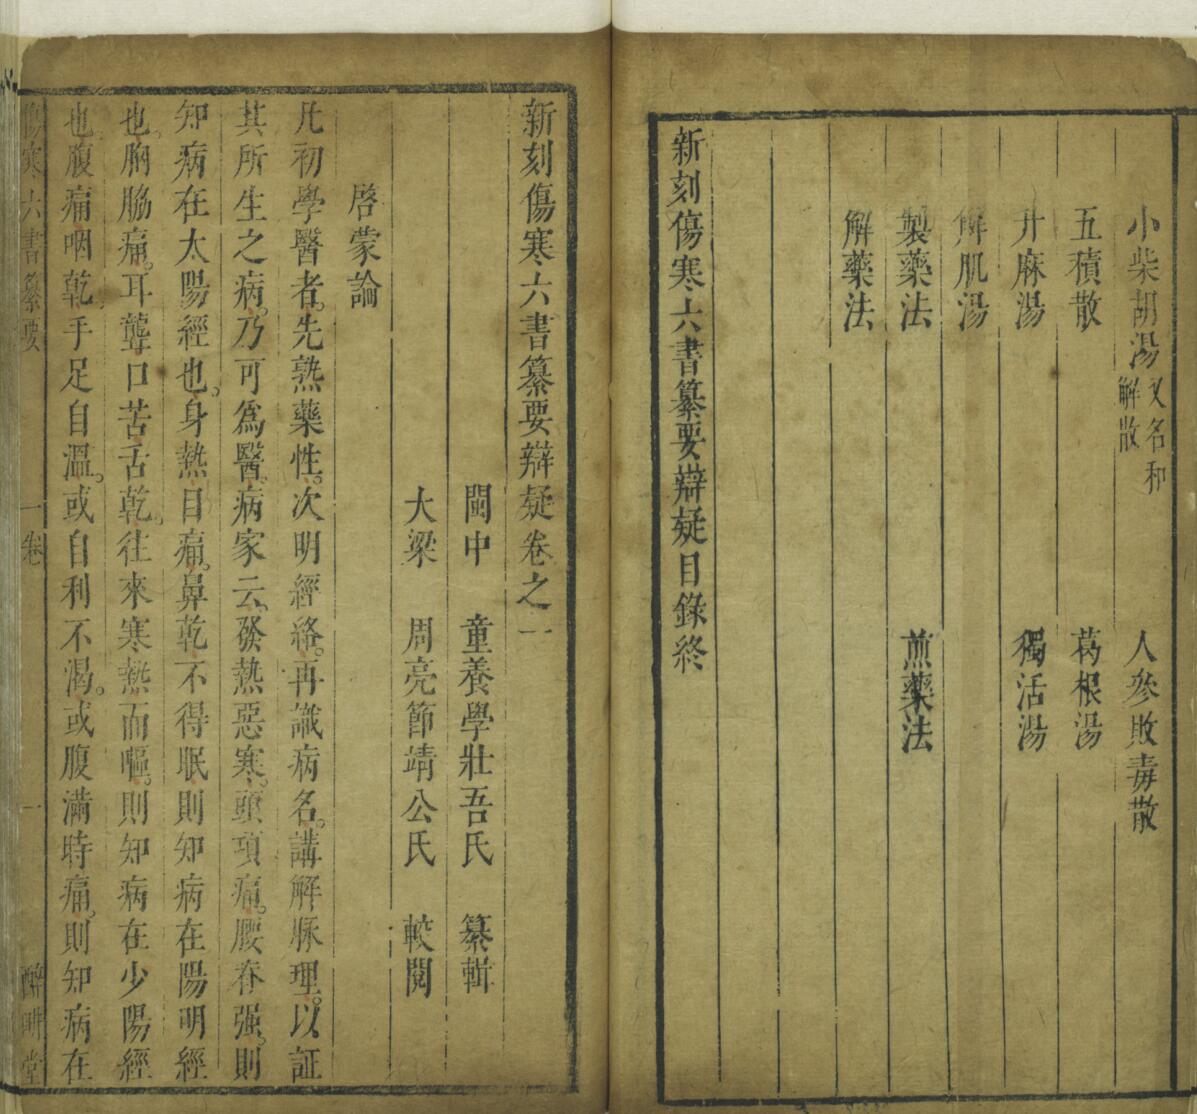 小柴胡湯 又名和解散 人參敗毒散
五積散 葛根湯
升麻湯 獨活湯
解肌湯
製藥法 煎藥法
解藥法
新刻傷寒六書纂要辯疑目錄終
新刻傷寒六書纂要辯疑卷之一
閩中 童養學壯吾氏 纂輯
大梁 周亮節靖公氏 較閱
啓蒙論
凡初學醫者。先熟藥性。次明經絡。再識病名。講解脉理。以証
其所生之病。乃可爲醫。病家云。發熱惡寒。頭項痛。腰脊强。則
知病在太陽經也。身熱目痛。鼻乾不得眠則知病在陽明經
也。胸脇痛。耳聾口苦舌乾。往來寒熱而嘔。則知病在少陽經
也腹痛咽乾手足自溫。或自利不渴。或腹滿時痛。則知病在
傷寒六書纂要 一卷 一 醉畊堂